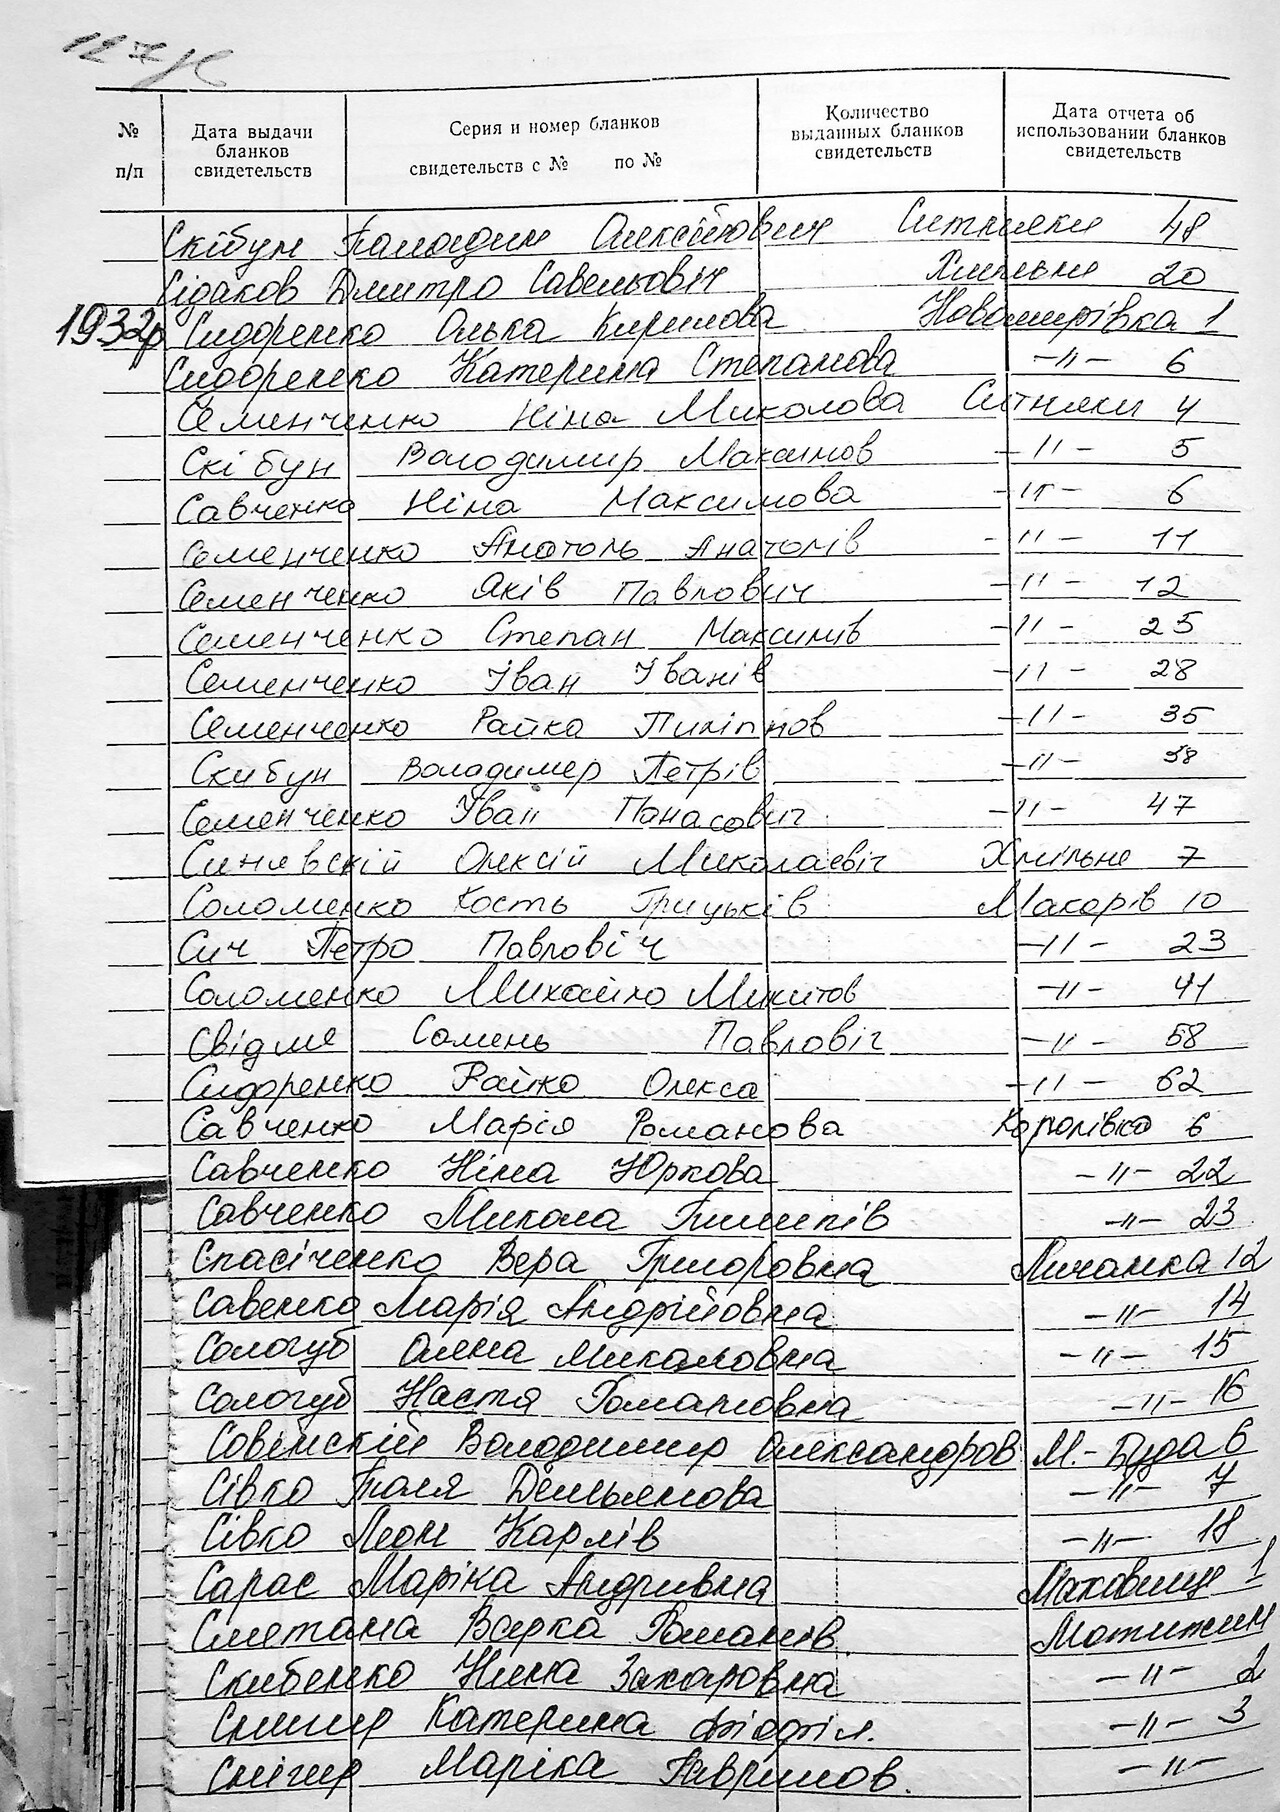 № п/п Дата выдачи бланков свидетельств Серия и номер бланков свидетельств с № по № Количество выданных бланков свидетельств Дата отчета об использовании бланков свидетельств
Скібун Олексійович Ситняки 48
Сідаков Дмитро Савельовіч Хмільни 20
1932р Сидоренко Олька Кирилова Новомирівка 1
Сидоренко Катерина Степанова -"- 6
Семенченко Ніна Миколова Ситняки 4
Скібун Володимир Максимов -"- 5
Савченко Ніна Максимова -"- 6
Семенченко Анатоль Анатолів -"- 11
Семенченко Яків Павлович -"- 12
Семенченко Степан Максимів -"- 25
Семенченко Іван Іванів -"- 28
Семенченко Райка Пиліпнов -"- 35
Скибун Володимер Петрів -"- 38
Семенченко Іван Панасович -"- 47
Синявскій Олексій Миколаєвіч Хмільне 7
Соломенко Кость Грицьків Макарів 10
Сич Петро Павловіч -"- 23
Соломенко Михайло Микитов -"- 41
Свідме Самень Павловіч -"- 58
Сидоренко Райко Олекса -"- 62
Савченко Марія Романова Королівка 6
Савченко Ніна Юркова -"- 22
Савченко Микола Пилипів -"- 23
Спасіченко Вера Григоровна Личанка 12
Савенко Марія Андрійовна -"- 14
Сологуб Олена Микаловна -"- 15
Сологуб Настя Романовна -"- 16
Совинскій Володимир Александров М.-Буда 6
Сівко Толя Демьянова -"- 7
Сівко Леон Карлів -"- 18
Сарас Маріка Андривна Маковище 1
Сметана Варка Романів Мотижин
Скибенко Нина Захаровна -"- 2
Снигир Катерина -"- 3
Снігир Маріка Гаврилов. -"-